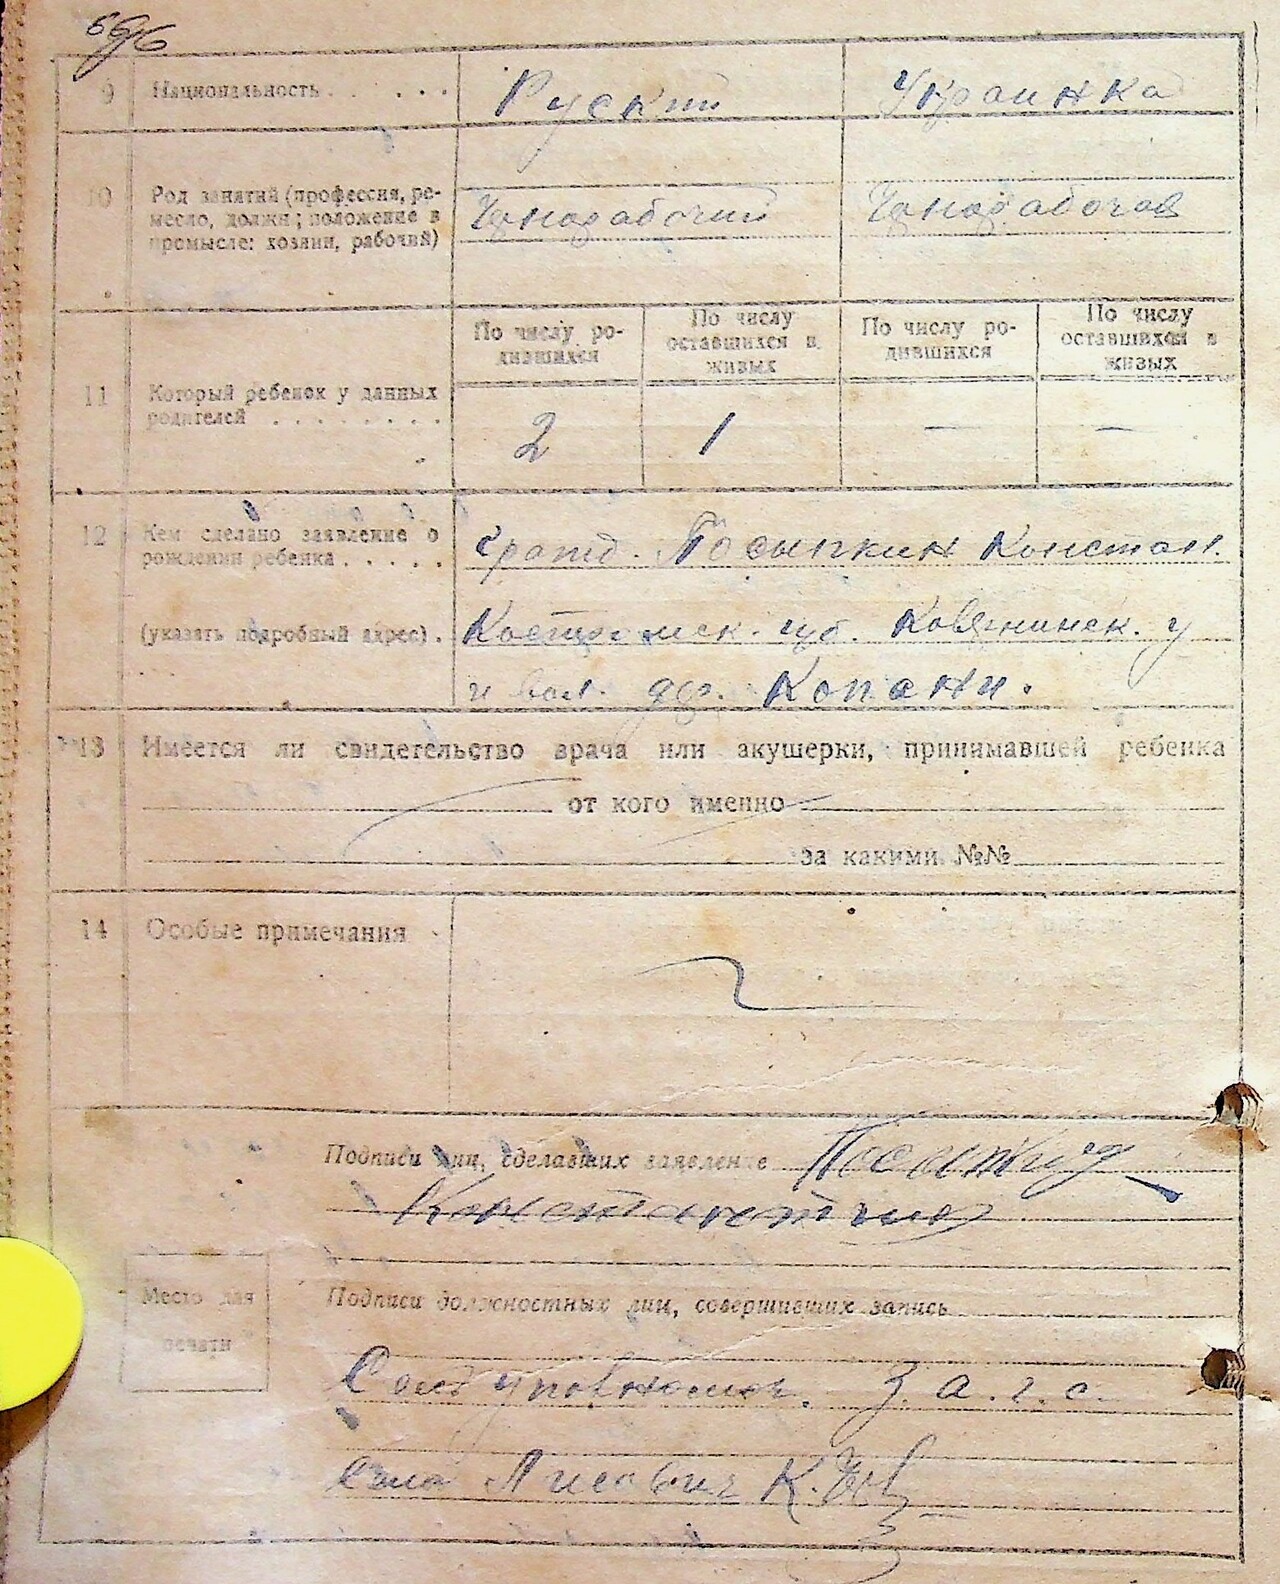 9 Национальность . . . . . Руский Украинка
10 Род занятий (профессия, ре-
месло, должн; положение в
промысле: хозяин, рабочий)
Чернорабочий Чернорабочая
По числу ро-
дившихся
По числу
оставшихся в
живых
По числу ро-
дившихся
По числу
оставшихся в
живых
11 Который ребенок у данных
родителей . . . . . . . .
2 1 — —
12 Кем сделано заявление о
рождении ребенка . . . . .
Гражд. Посыпкин Констан.
(указать подробный адрес) . Костромск. губ. у
и вол. дер. Копани.
13 Имеется ли свидетельство врача или акушерки, принимавшей ребенка
от кого именно
за какими №№
14 Особые примечания
Подписи лиц, сделавших заявление
Константин
Место для
печати
Подписи должностных лиц, совершивших запись
З.а.г.с.
К.